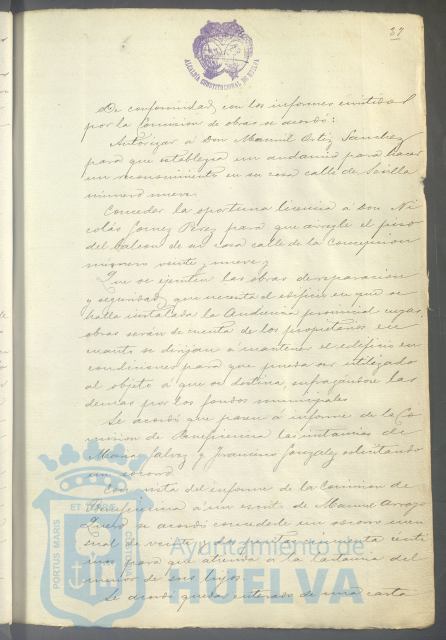 37
ALCALDIA CONSTITUCIONAL DE HUELVA
De conformidad con los informes emitidos
por la Comision de obras se acordó:
Autorizar á Don Manuel Ortiz Sanchez
para que establezca un andamio para hacer
un reconocimiento en su casa calle de Sevilla
número nueve.
Conceder la oportuna licencia á Don Ni
colás Gomez Perez para que arregle el piso
del balcon de su casa calle de la Concepcion
número veinte y nueve,
Que se ejecuten las obras de reparacion
y seguridad que necesita el edificio en que se
halla instalada la Audiencia provincial cuyas
obras serán de cuenta de los propietarios en
cuanto se dirijan á mantener el edificio en
condiciones para que pueda ser utilizado
al objeto á que se destina, sufragándose las
demas por los fondos municipales
Se acordó que pasen á informe de la Co
mision de Beneficencia las instancias de
Maria Galvez y Francisco Gonzalez solicitando
un socorro
Con vista del informe de la Comision de
Beneficencia á un escrito de Manuel Arroyo
se acordó concederle un socorro men
sual de veinte y dos pesetas cincuenta centi
mos para que atienda á la lactancia del
menor de sus hijos.
Se acordó quedar enterado de una carta
PORTUS MARIS ET TERRAE CUSTODIA
Ayuntamiento de
HUELVA